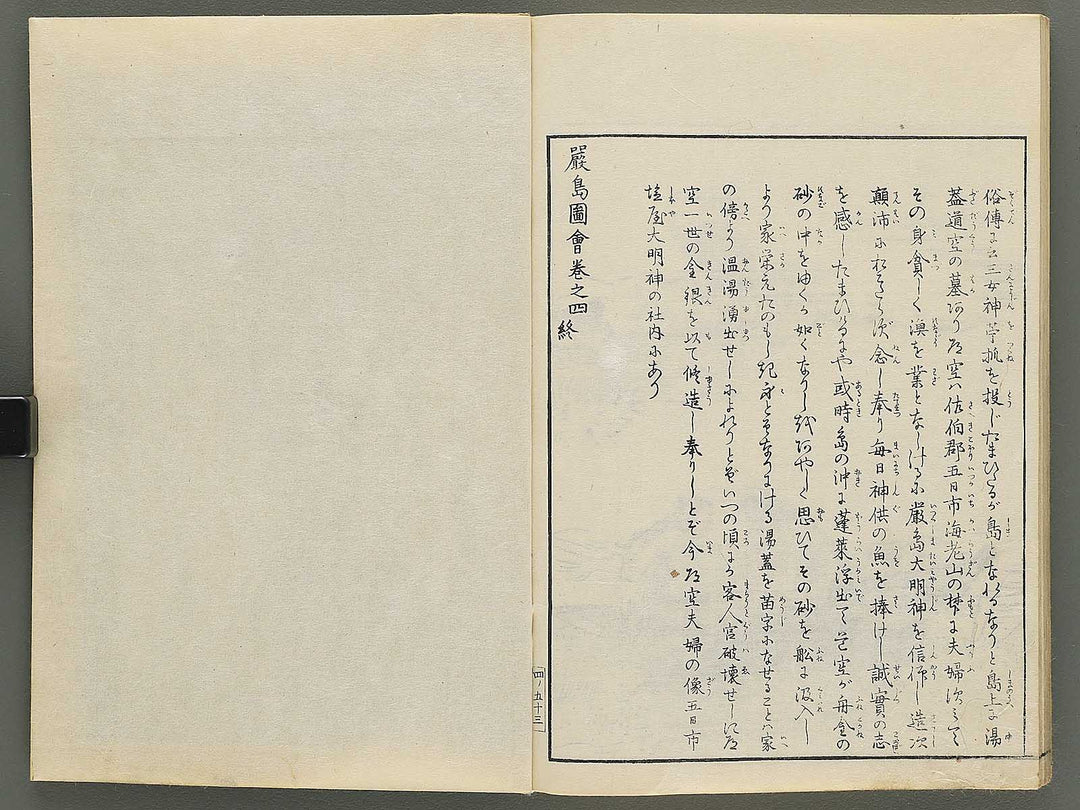 俗傳に云三女神苧瓶を投じたまひたるが島となれるなりと島上に湯
蓋道空の墓あり道空ハ佐伯郡五日市海老山の梺に夫婦次ミて
その身貧しく漁を業となしけるに嚴島大明神を信仰し造次
顛沛にわするゝ念し奉り毎日神供の魚を捧けし誠實の志
を感したまひけるにや或時島の沖に蓬莱浮出て道空が舟金の
砂の中をゆくか如くなりしあやしく思ひてその砂を舩に汲入し
より家栄えたのもしき身とそなりにける湯蓋を苗字になせることハ家
の傍より温湯湧出せしによれりとぞいつの頃にか客人宮破壊せしに道
空一世の金銀を以て修造し奉りしとぞ今道空夫婦の像五日市
塩屋大明神の社内にあり
嚴島圖會巻之四終
四ノ五十三